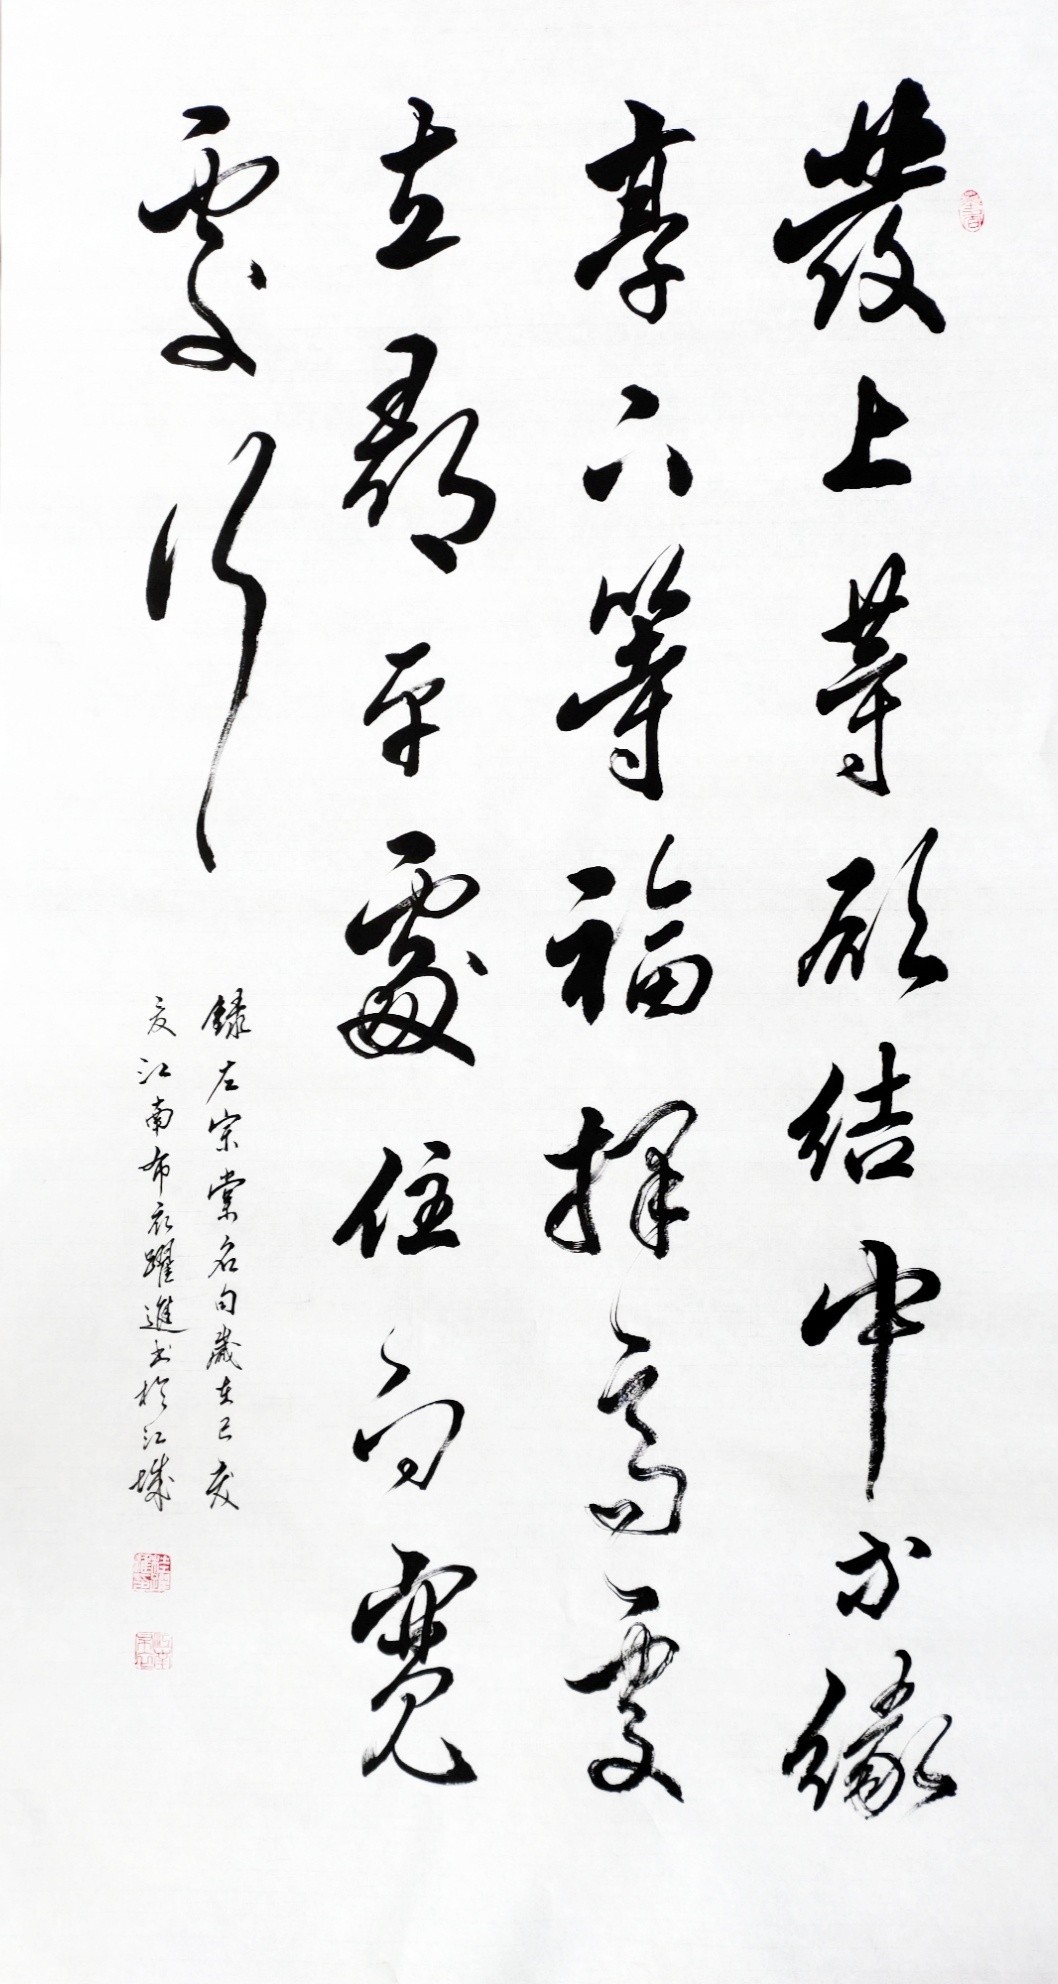 發上等願結中等緣
享下等福擇高處
立尋平處住向寬
處行
錄左宗棠名句歲在己亥
夏江南布衣躍進書於江城